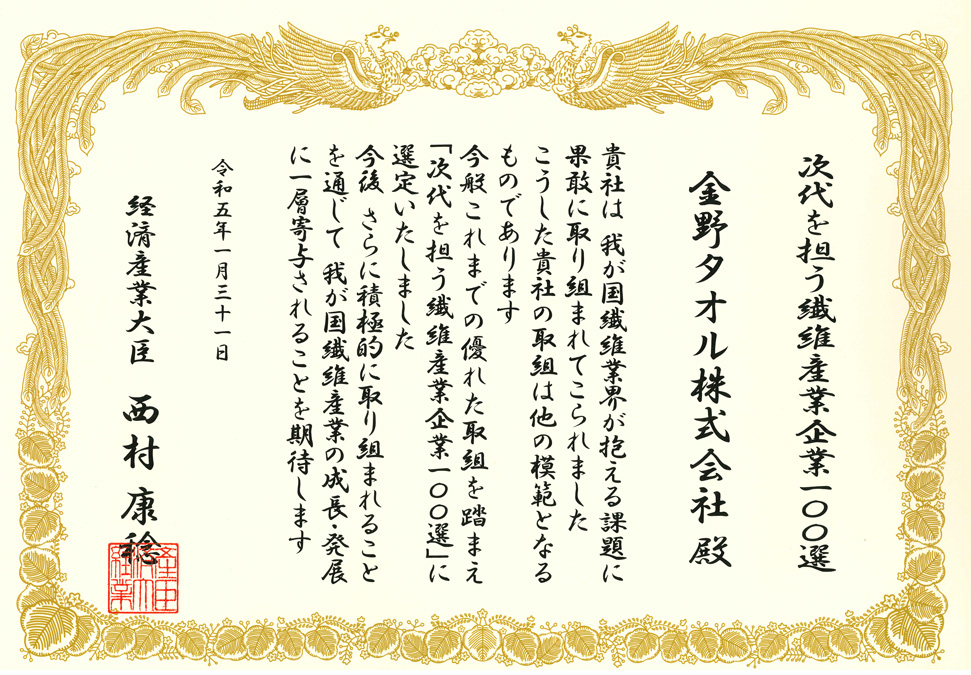 次代を担う繊維産業企業一〇〇選
金野タオル株式会社 殿
貴社は 我が国繊維業界が抱える課題に
果敢に取り組まれてこられました
こうした貴社の取組は他の模範となる
ものであります
今般これまでの優れた取組を踏まえ
「次代を担う繊維産業企業一〇〇選」に
選定いたしました
今後 さらに積極的に取り組まれること
を通じて 我が国繊維産業の成長・発展
に一層寄与されることを期待します
令和五年一月三十一日
経済産業大臣 西村 康稔